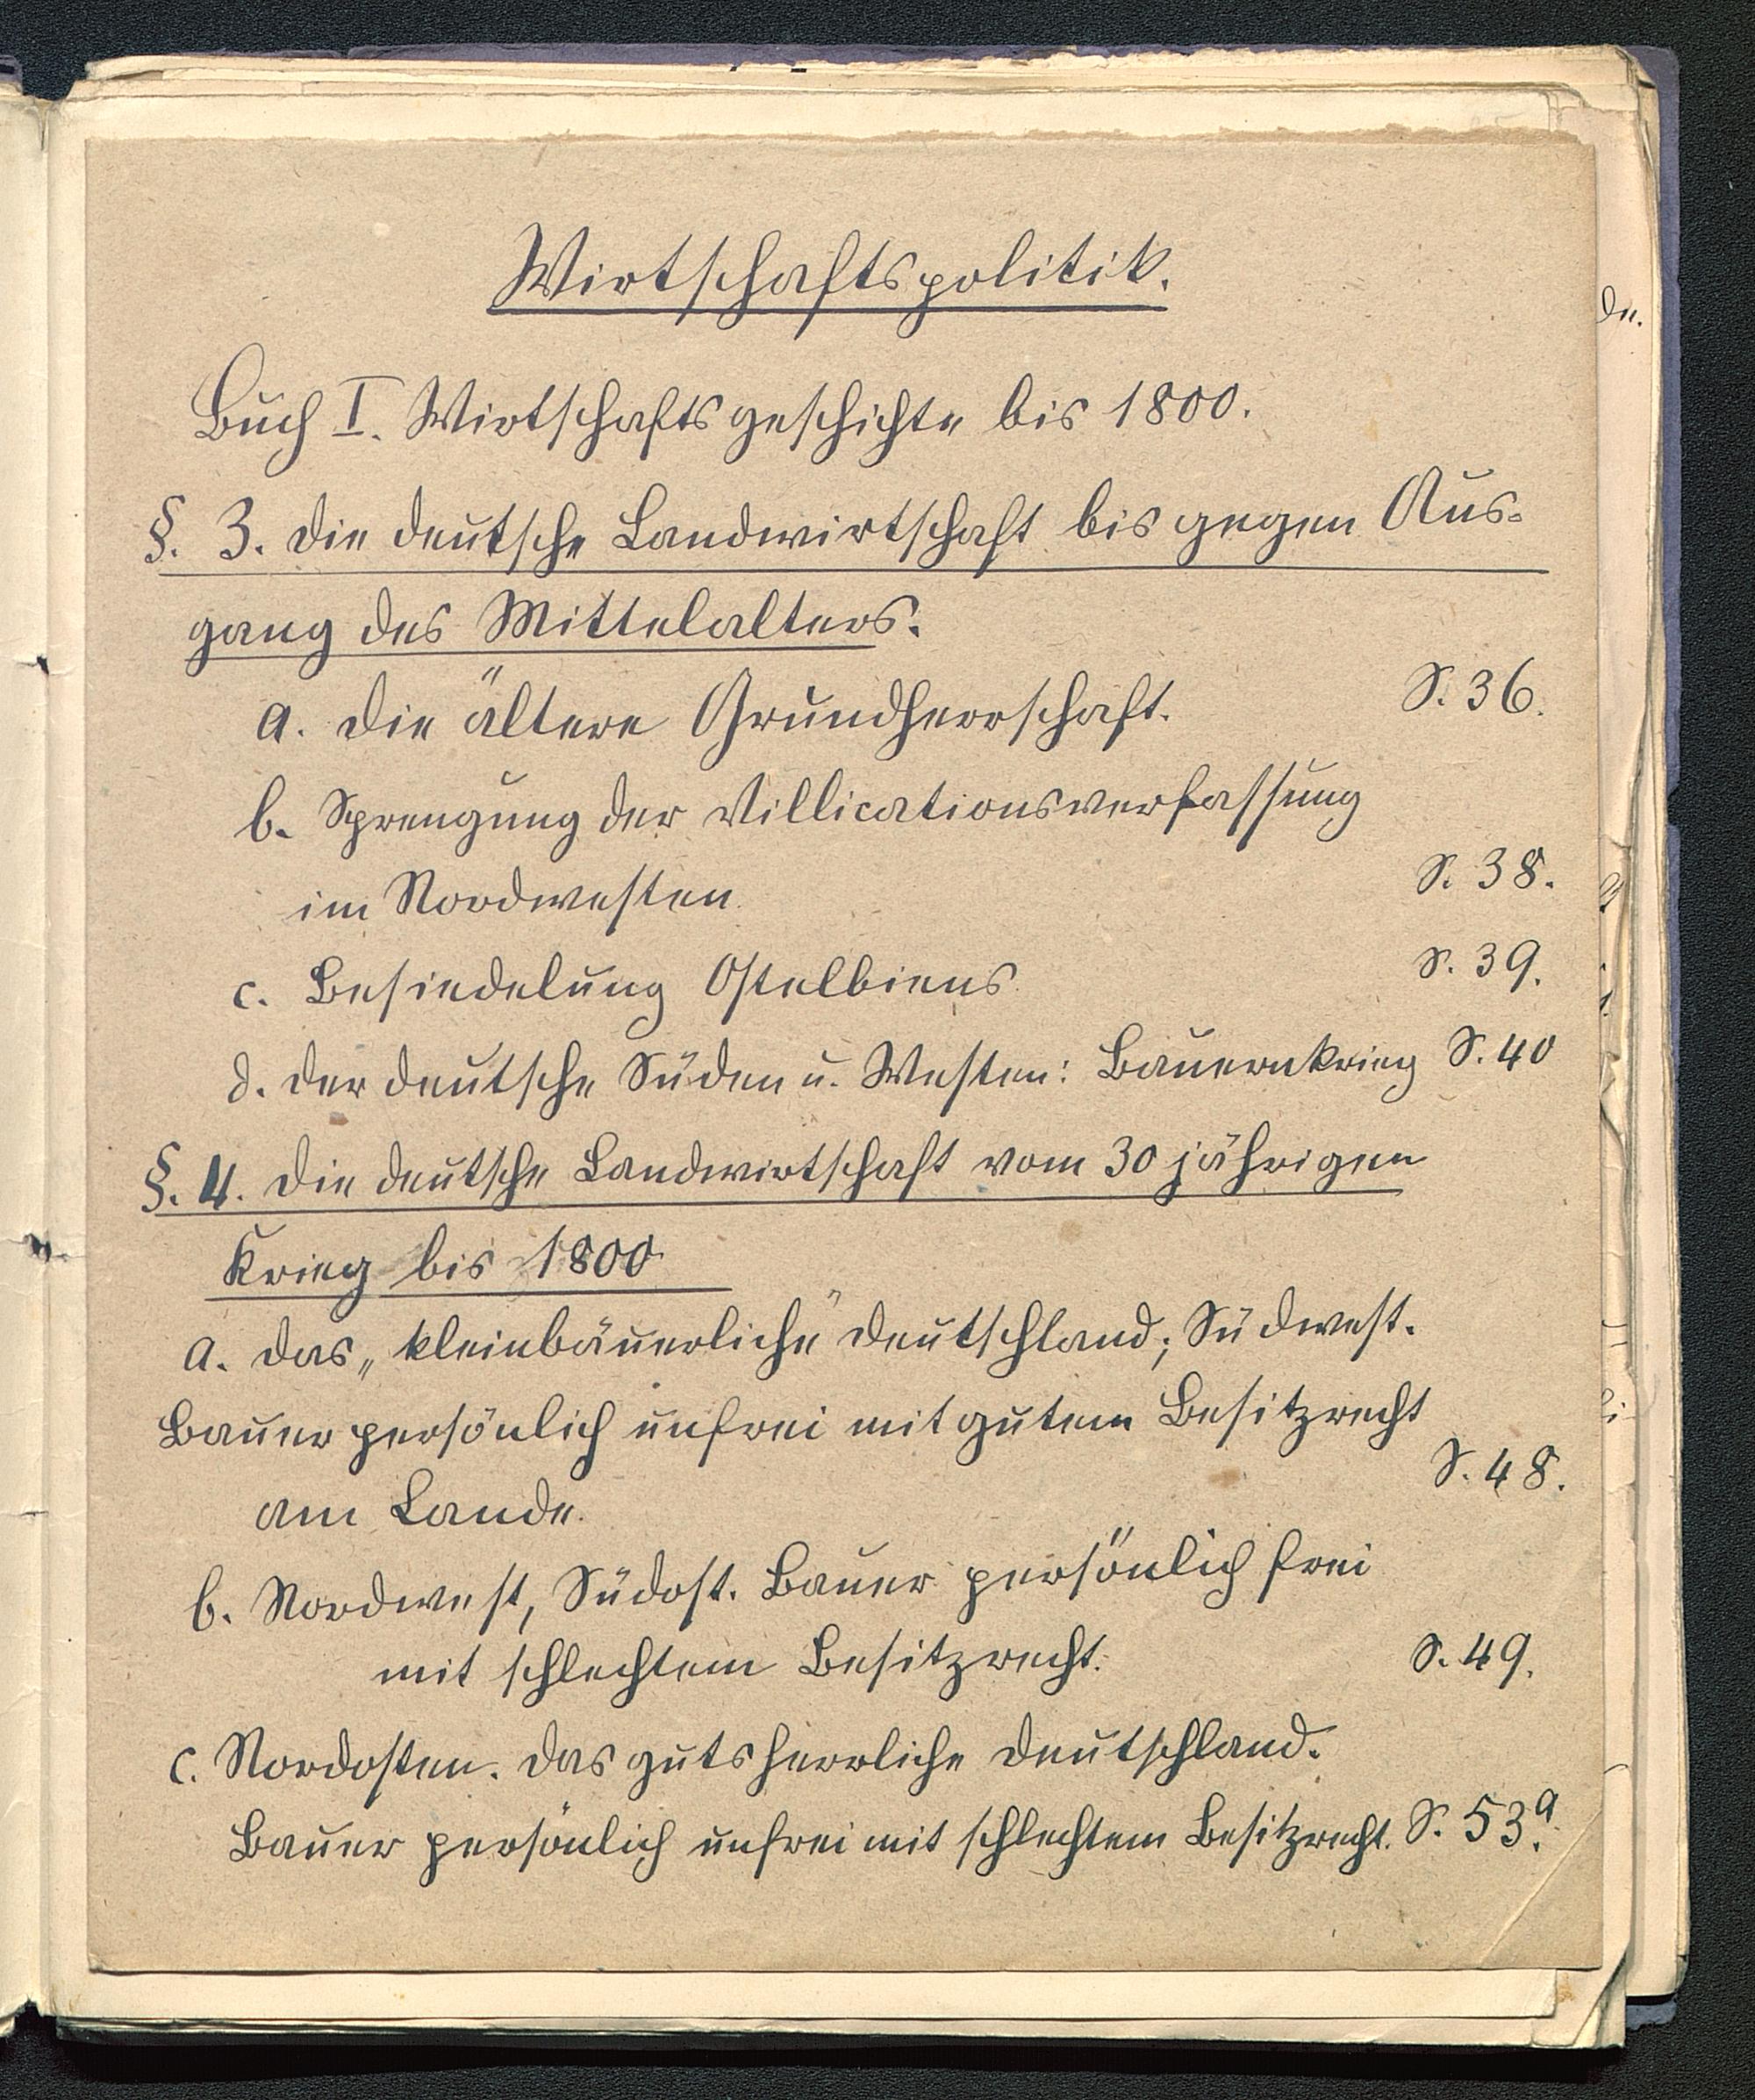 Wirtschaftspolitik.
Buch I. Wirtschaftsgeschichte bis 1800.
§. 3. Die deutsche Landwirtschaft bis gegen Aus-
gang des Mittelalters.
a. Die ältere Grundherrschaft. S. 36.
b. Sprengung der Villicationsverfassung
im Nordwesten. S. 38.
c. Besiedelung Ostelbiens. S. 39.
d. Der deutsche Süden u. Westen: Bauernkrieg S. 40
§. 4. Die deutsche Landwirtschaft vom 30 jährigen
Krieg bis 1800
a. Das „kleinbäuerliche" Deutschland; Südwest.
Bauer persönlich unfrei mit gutem Besitzrecht
am Lande. S. 48.
b. Nordwest, Südost. Bauer persönlich frei
mit schlechtem Besitzrecht. S. 49.
c. Nordosten. Das gutsherrliche Deutschland.
Bauer persönlich unfrei mit schlechtem Besitzrecht. S. 53a.